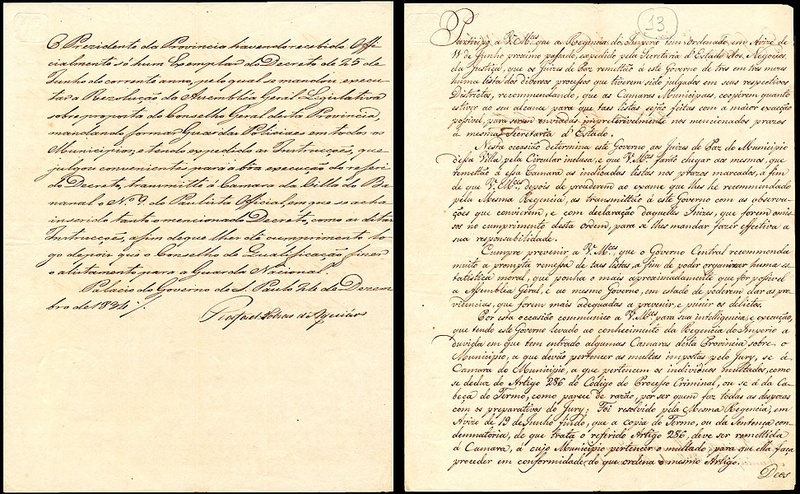 O Prezidente da Provincia havendo recebido Offi-
cialmente só hum Exemplar do Decreto de 25 de
Junho do corrente anno, pelo qual se mandou execu-
tar a Rezolução da Assembléa Geral Legislativa
sobre proposta do Conselho Geral desta Provincia,
mandando formar Guardas Policiaes em todos os
Municipios, e tendo expedido as Instrucções, que
julgou convenientes para a boa execução do referi-
do Decreto, transmitte á Camara da Villa do Ba-
nanal o Nº 9 do Paulista Official, em que se acha
inserido tanto o mencionado Decreto, como as ditas
Instrucções, afim de que lhe dê cumprimento lo-
go depois que o Conselho de Qualificação fizer
o alistamento para a Guarda Nacional.
Palacio do Governo de S. Paulo 24 de Dezem-
bro de 1834
Rafael Tobias de Aguiar
13
Participo a Vmces que a Regencia do Imperio tem ordenado, em Avizo de
11 de Junho proximo passado, expedido pela Secretaria d'Estado dos Negocios
da Justiça, que os Juizes de Paz remettão á este Governo de tres em tres mezes
huma lista dos diversos processos que tiverem sido julgados em seus respectivos
Districtos, recommendando, que as Camaras Municipaes, cooperem quanto
estiver ao seu alcance para que taes listas sejão feitas com a maior exacção
possivel, para serem enviadas impreterivelmente nos mencionados prazos
á mesma Secretaria d'Estado.
Nesta occasião determina este Governo aos Juizes de Paz do Municipio
dessa Villa, pela Circular incluza, e que Vmces farão chegar aos mesmos, que
remettão á essa Camara as indicadas listas nos prazos marcados, a fim
de que Vmces depois de procederem ao exame que lhes he recommendado
pela Mesma Regencia, as transmittão á este Governo com as observa-
ções que convierem, e com declaração daquelles Juizes, que forem omis-
sos no cumprimento desta ordem, para se lhes mandar fazer effectiva a
sua responsabilidade.
Cumpre prevenir a Vmces, que o Governo Central recommenda
muito a prompta remessa de taes listas, a fim de poder organizar huma es-
tatistica moral, que ponha o mais aproximadamente que for possivel
a Assembléa Geral, e ao mesmo Governo, em estado de poderem dar as pro-
videncias, que forem mais adequadas a prevenir, e punir os delictos.
Por esta occasião communico a Vmces para sua intelligencia, e execução,
que tendo este Governo levado ao conhecimento da Regencia do Imperio a
duvida em que tem entrado algumas Camaras desta Provincia sobre o
Municipio, a que devão pertencer as multas impostas pelo Jury, se á
Camara do Municipio, a que pertencem os individuos multados, como
se deduz do Artigo 286 do Codigo do Processo Criminal, ou se á da Ca-
beça do Termo, como parece de razão, por ser quem faz todas as despezas
com os preparativos do Jury; Foi resolvido pela Mesma Regencia, em
Avizo de 19 de Junho findo, que a copia do Termo, ou da Sentença con-
demnatoria, de que trata o referido Artigo 286, deve ser remettida
á Camara, á cujo Municipio pertencer o multado, para que ella faça
proceder em conformidade do que ordena o mesmo Artigo.
Deos